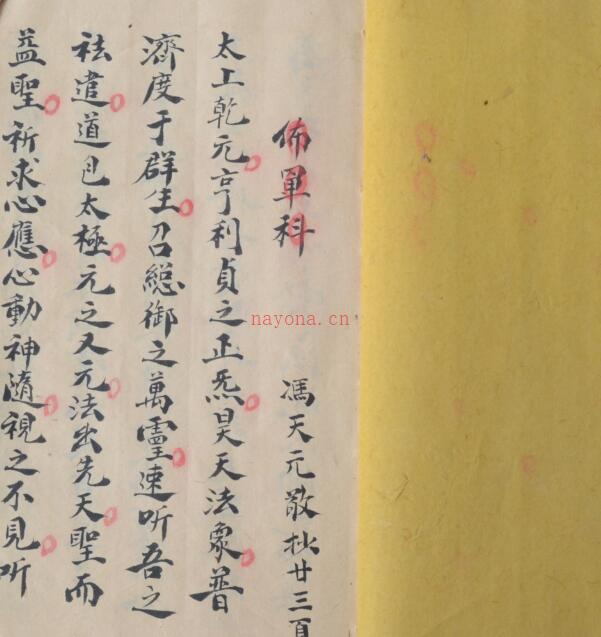 佈軍科
馮天元敬抄廿三頁
太上乾元亨利貞之正炁昊天法象普
濟度于群生召総御之萬靈速听吾之
祛遣道包太極元之又元法出先天聖而
益聖祈求心應心動神隨視之不見听
nayona.cn